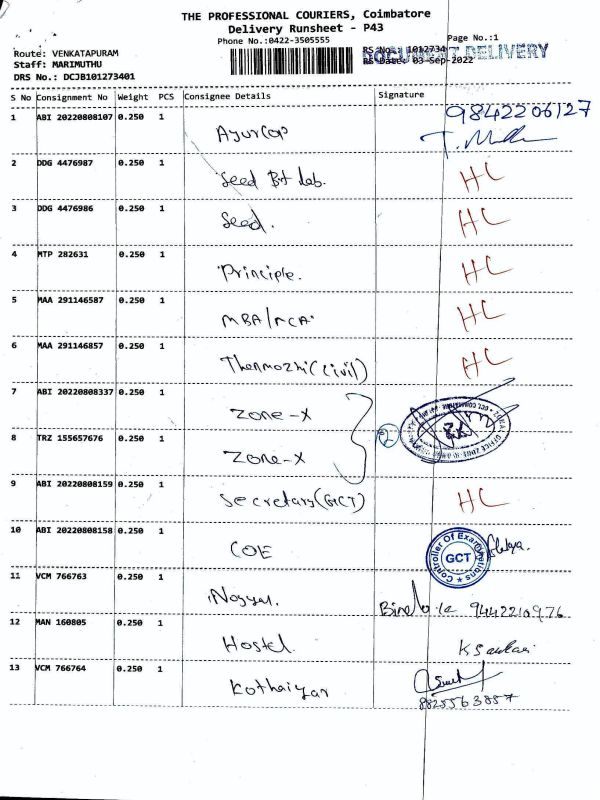 THE PROFESSIONAL COURIERS, Coimbatore
Delivery Runsheet - P43
Phone No.:0422-3505555
Page No.:1
Route: VENKATAPURAM
RS No.: 1012734
DOCUMENT DELIVERY
Staff: MARIMUTHU
RS Date: 03-Sep-2022
DRS No.: DCJB101273401
S No Consignment No Weight PCS Consignee Details Signature
1 ABI 20220808107 0.250 1 Ayurcop 9842206127
2 DDG 4476987 0.250 1 Seed Bt Lab. HC
3 DDG 4476986 0.250 1 Seed. HC
4 MTP 282631 0.250 1 Principle. HC
5 MAA 291146587 0.250 1 MBA/MCA. HC
6 MAA 291146857 0.250 1 Thenmozhi (Civil) HC
7 ABI 20220808337 0.250 1 Zone-X
8 TRZ 155657676 0.250 1 Zone-X 2
9 ABI 20220808159 0.250 1 Secretary (GCT) HC
10 ABI 20220808158 0.250 1 COE Controller Of Examinations GCT
11 VCM 766763 0.250 1 9442210976
12 MAN 160805 0.250 1 Hostel.
13 VCM 766764 0.250 1 Kothaiyar
9825563857